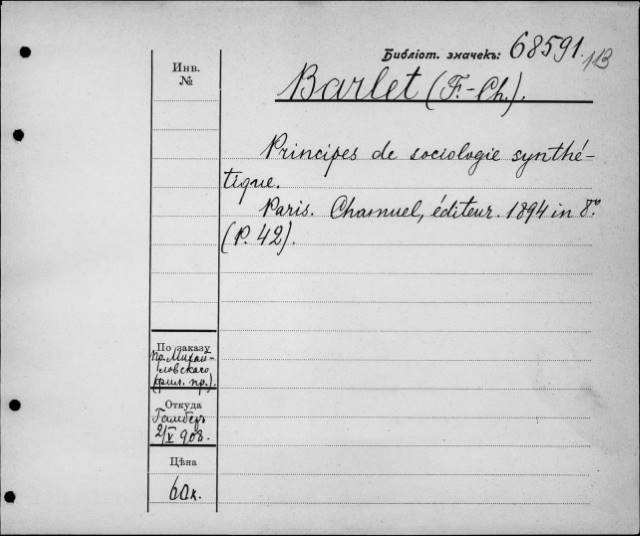 Библіот. значекъ: 68591. 1/B
Инв.
№
Barlet (F.-Ch.).
Principes de sociologie synthé-
tique.
Paris. Chamuel, éditeur. 1894 in 8º.
(P. 42).
По заказу
пр. Михай-
ловскаго
(фил. пр.).
Откуда
2/V 908.
Цѣна
60к.